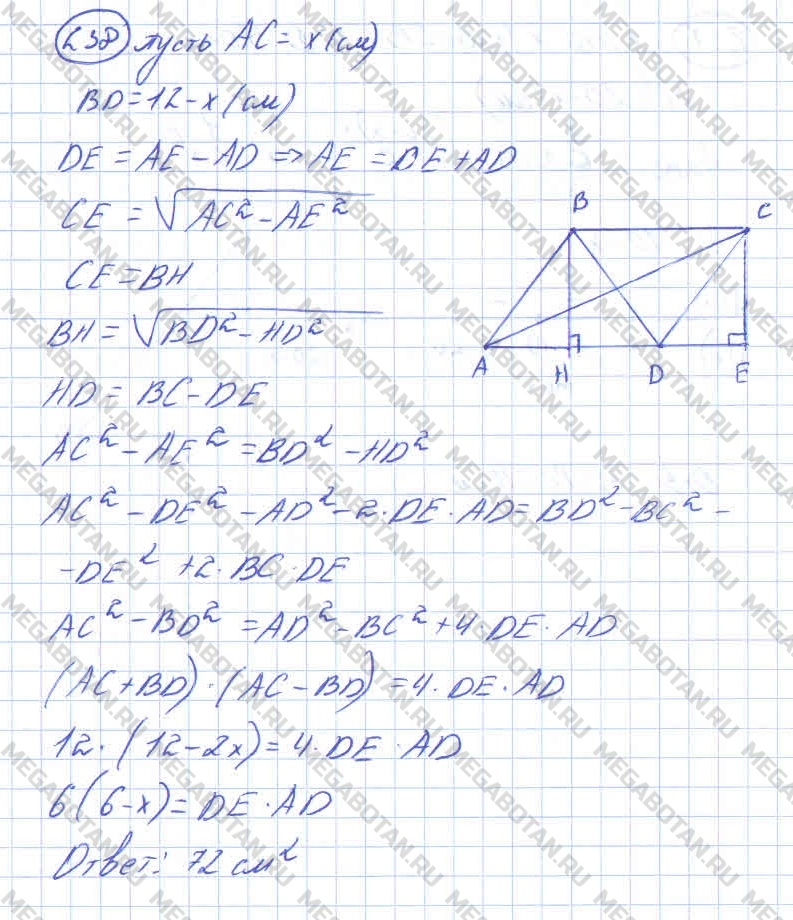 238 пусть AC = x (см)
BD = 12 - x (см)
DE = AE - AD => AE = DE + AD
CE = √AC² - AE²
CE = BH
BH = √BD² - HD²
HD = BC - DE
AC² - AE² = BD² - HD²
AC² - DE² - AD² - 2·DE·AD = BD² - BC² -
- DE² + 2·BC·DE
AC² - BD² = AD² - BC² + 4·DE·AD
(AC + BD)·(AC - BD) = 4·DE·AD
12·(12 - 2x) = 4·DE·AD
6(6 - x) = DE·AD
Ответ: 72 см²
B
C
A
H
D
E
MEGABOTAN.RU